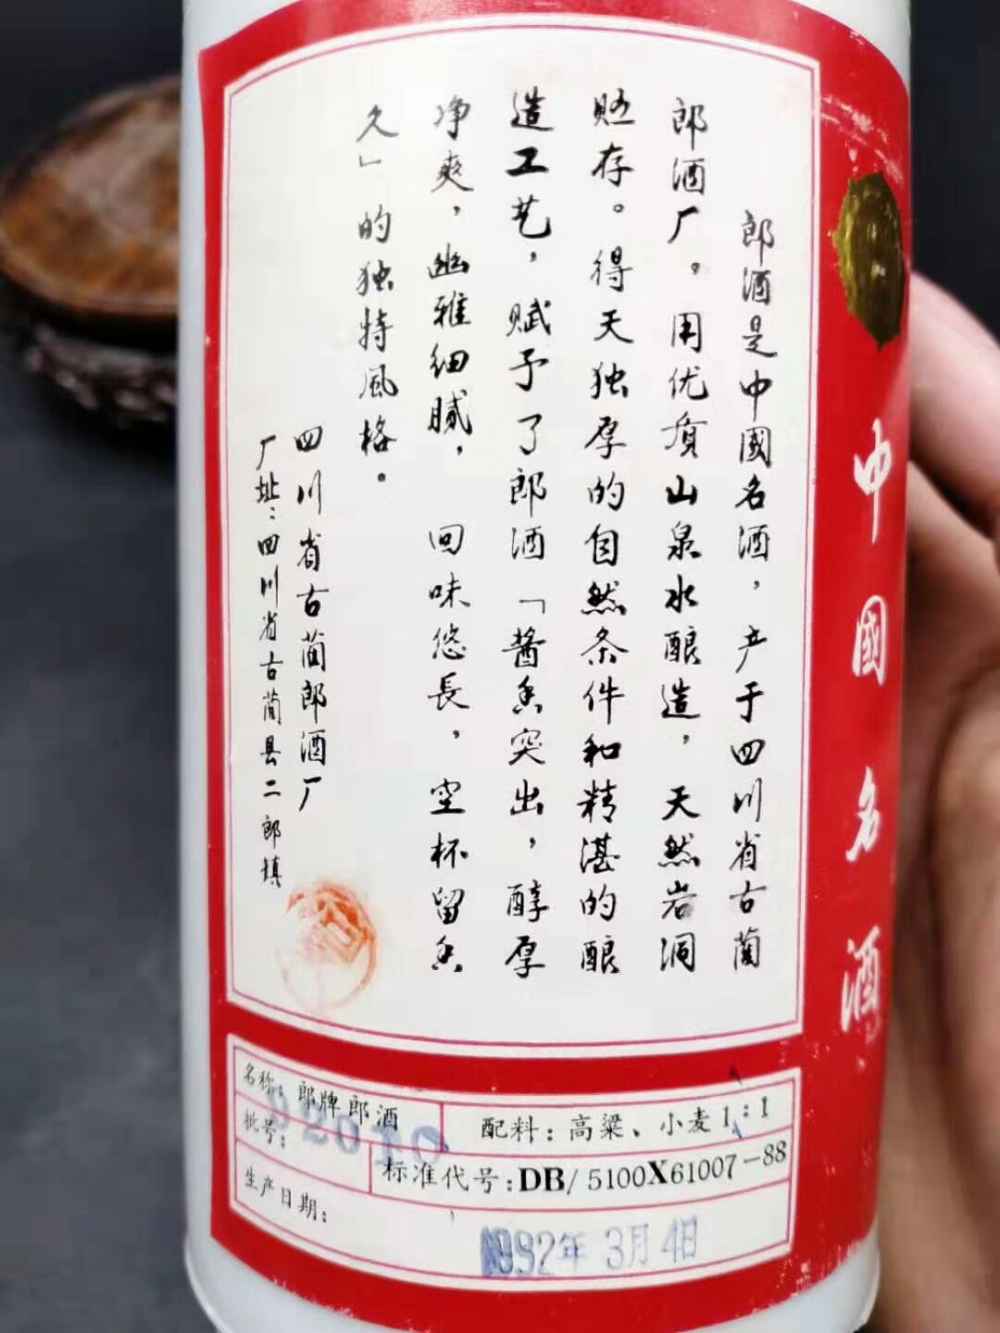 郎酒是中國名酒，产于四川省古蔺
郎酒厂。用优质山泉水酿造，天然岩洞
贮存。得天独厚的自然条件和精湛的酿
造工艺，赋予了郎酒「酱香突出，醇厚
净爽，幽雅细腻，回味悠長，空杯留香
久」的独特風格。
四川省古蔺郎酒厂
厂址：四川省古蔺县二郎镇
中國名酒
名称：郎牌郎酒
配料：高粱、小麦1：1
批号：
标准代号：DB/5100X61007-88
生产日期：
1992年3月4日